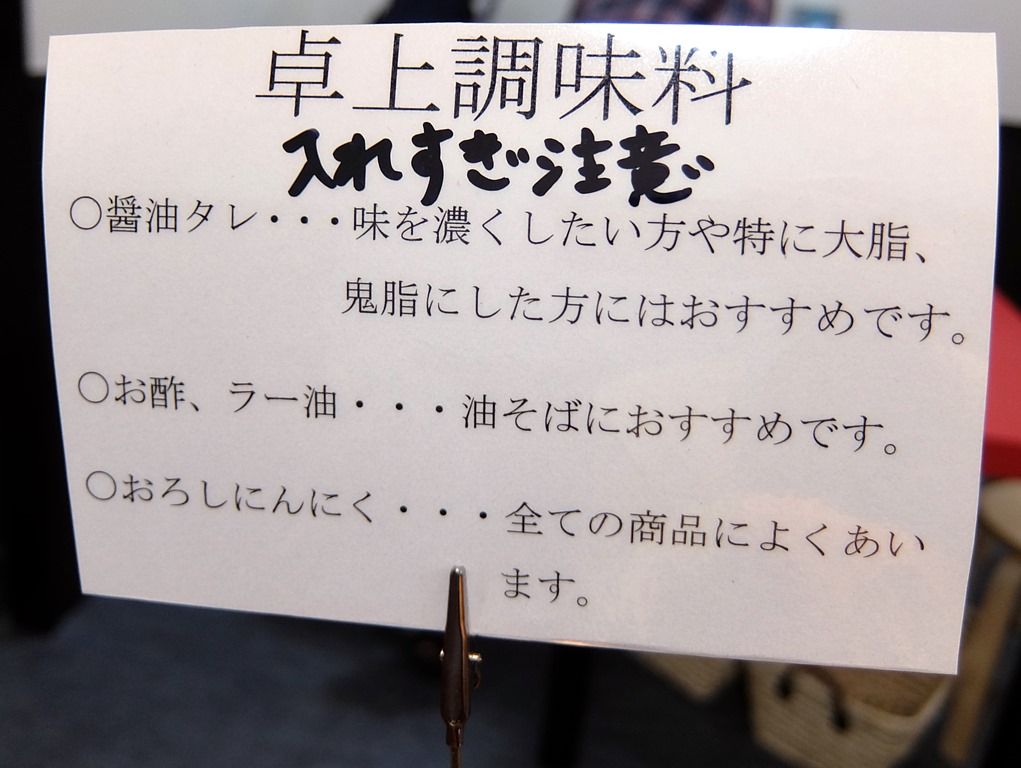 卓上調味料
入れすぎ注意
〇醤油タレ・・・味を濃くしたい方や特に大脂、
鬼脂にした方にはおすすめです。
〇お酢、ラー油・・・油そばにおすすめです。
〇おろしにんにく・・・全ての商品によくあい
ます。